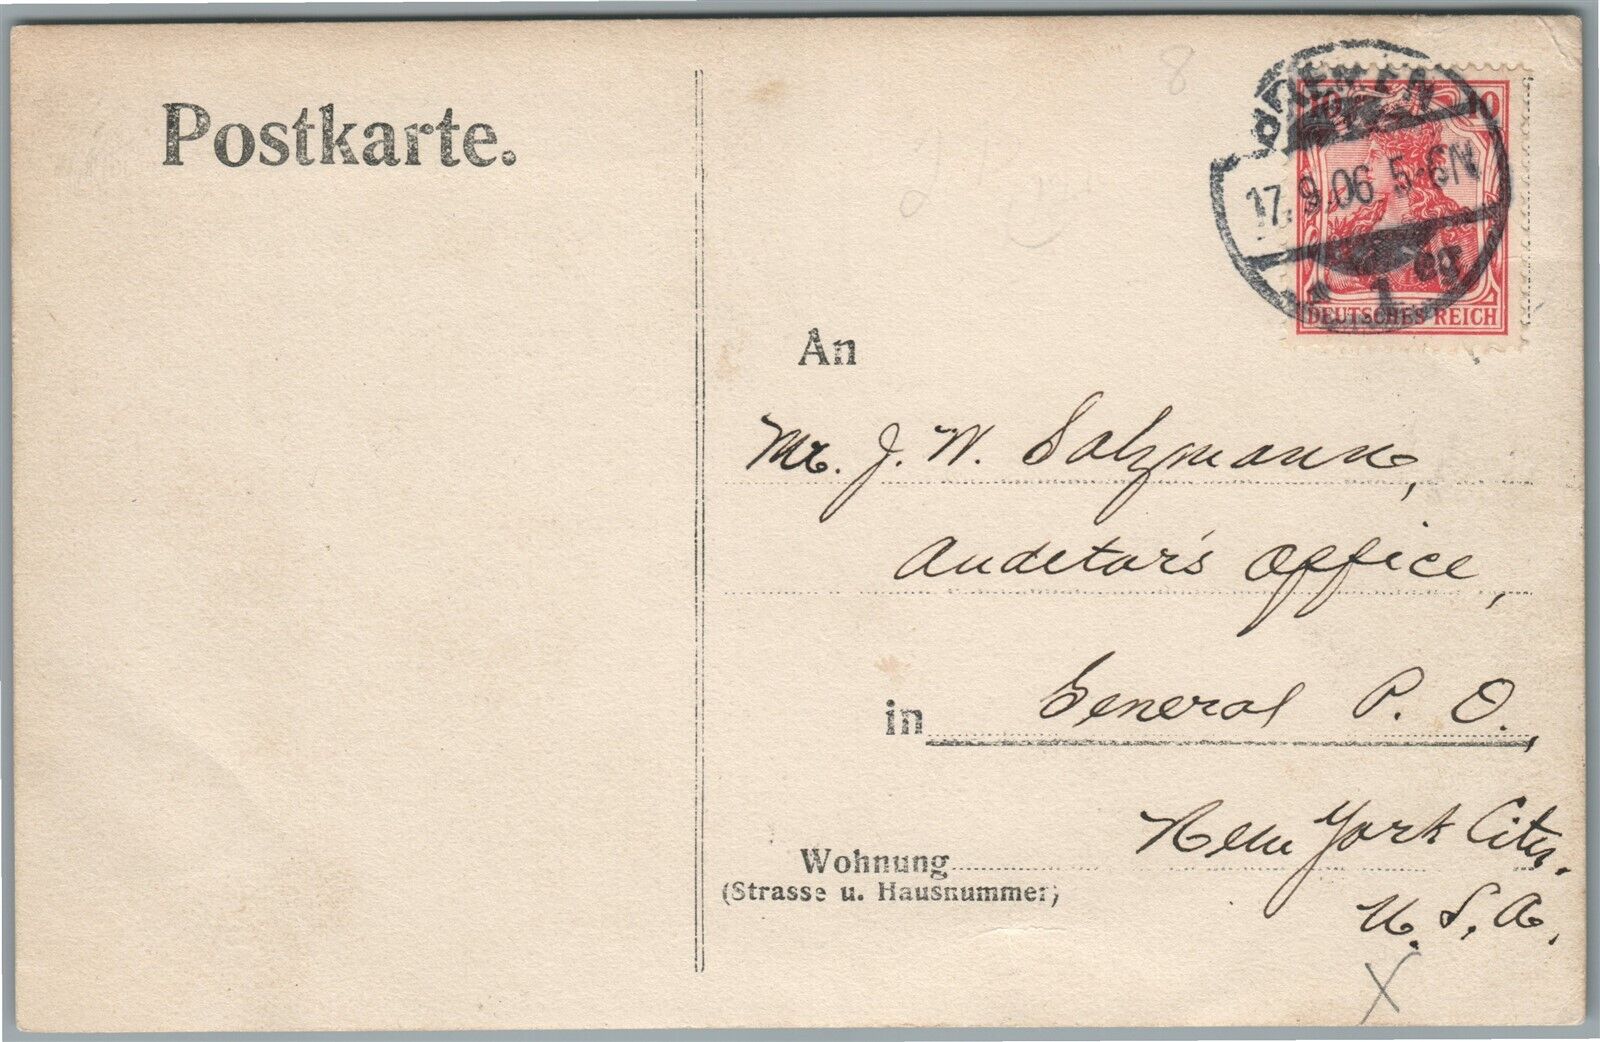 Postkarte.
8
BREMEN
10 10
17.9.06 5-6N
* 1 eg
DEUTSCHES REICH
An
Mr. J. W. Salzmann,
Auditor's Office,
in General P. O.,
Wohnung New York City.
(Strasse u. Hausnummer)
U. S. A.
X